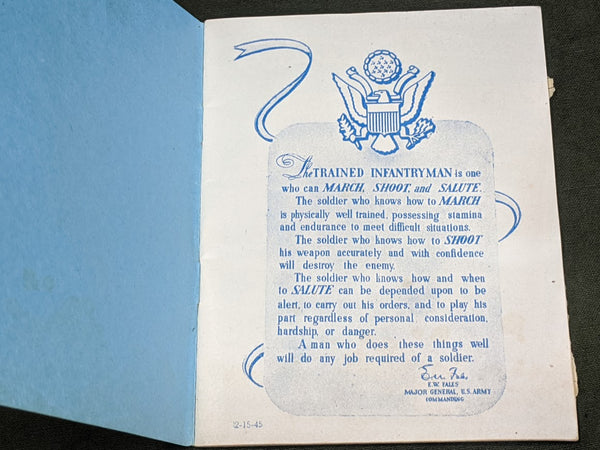 The TRAINED INFANTRYMAN is one
who can MARCH, SHOOT, and SALUTE.
The soldier who knows how to MARCH
is physically well trained, possessing stamina
and endurance to meet difficult situations.
The soldier who knows how to SHOOT
his weapon accurately and with confidence
will destroy the enemy.
The soldier who knows how and when
to SALUTE can be depended upon to be
alert, to carry out his orders, and to play his
part regardless of personal consideration,
hardship, or danger.
A man who does these things well
will do any job required of a soldier.
E.W. FALES
MAJOR GENERAL, U.S. ARMY
COMMANDING
12-15-45